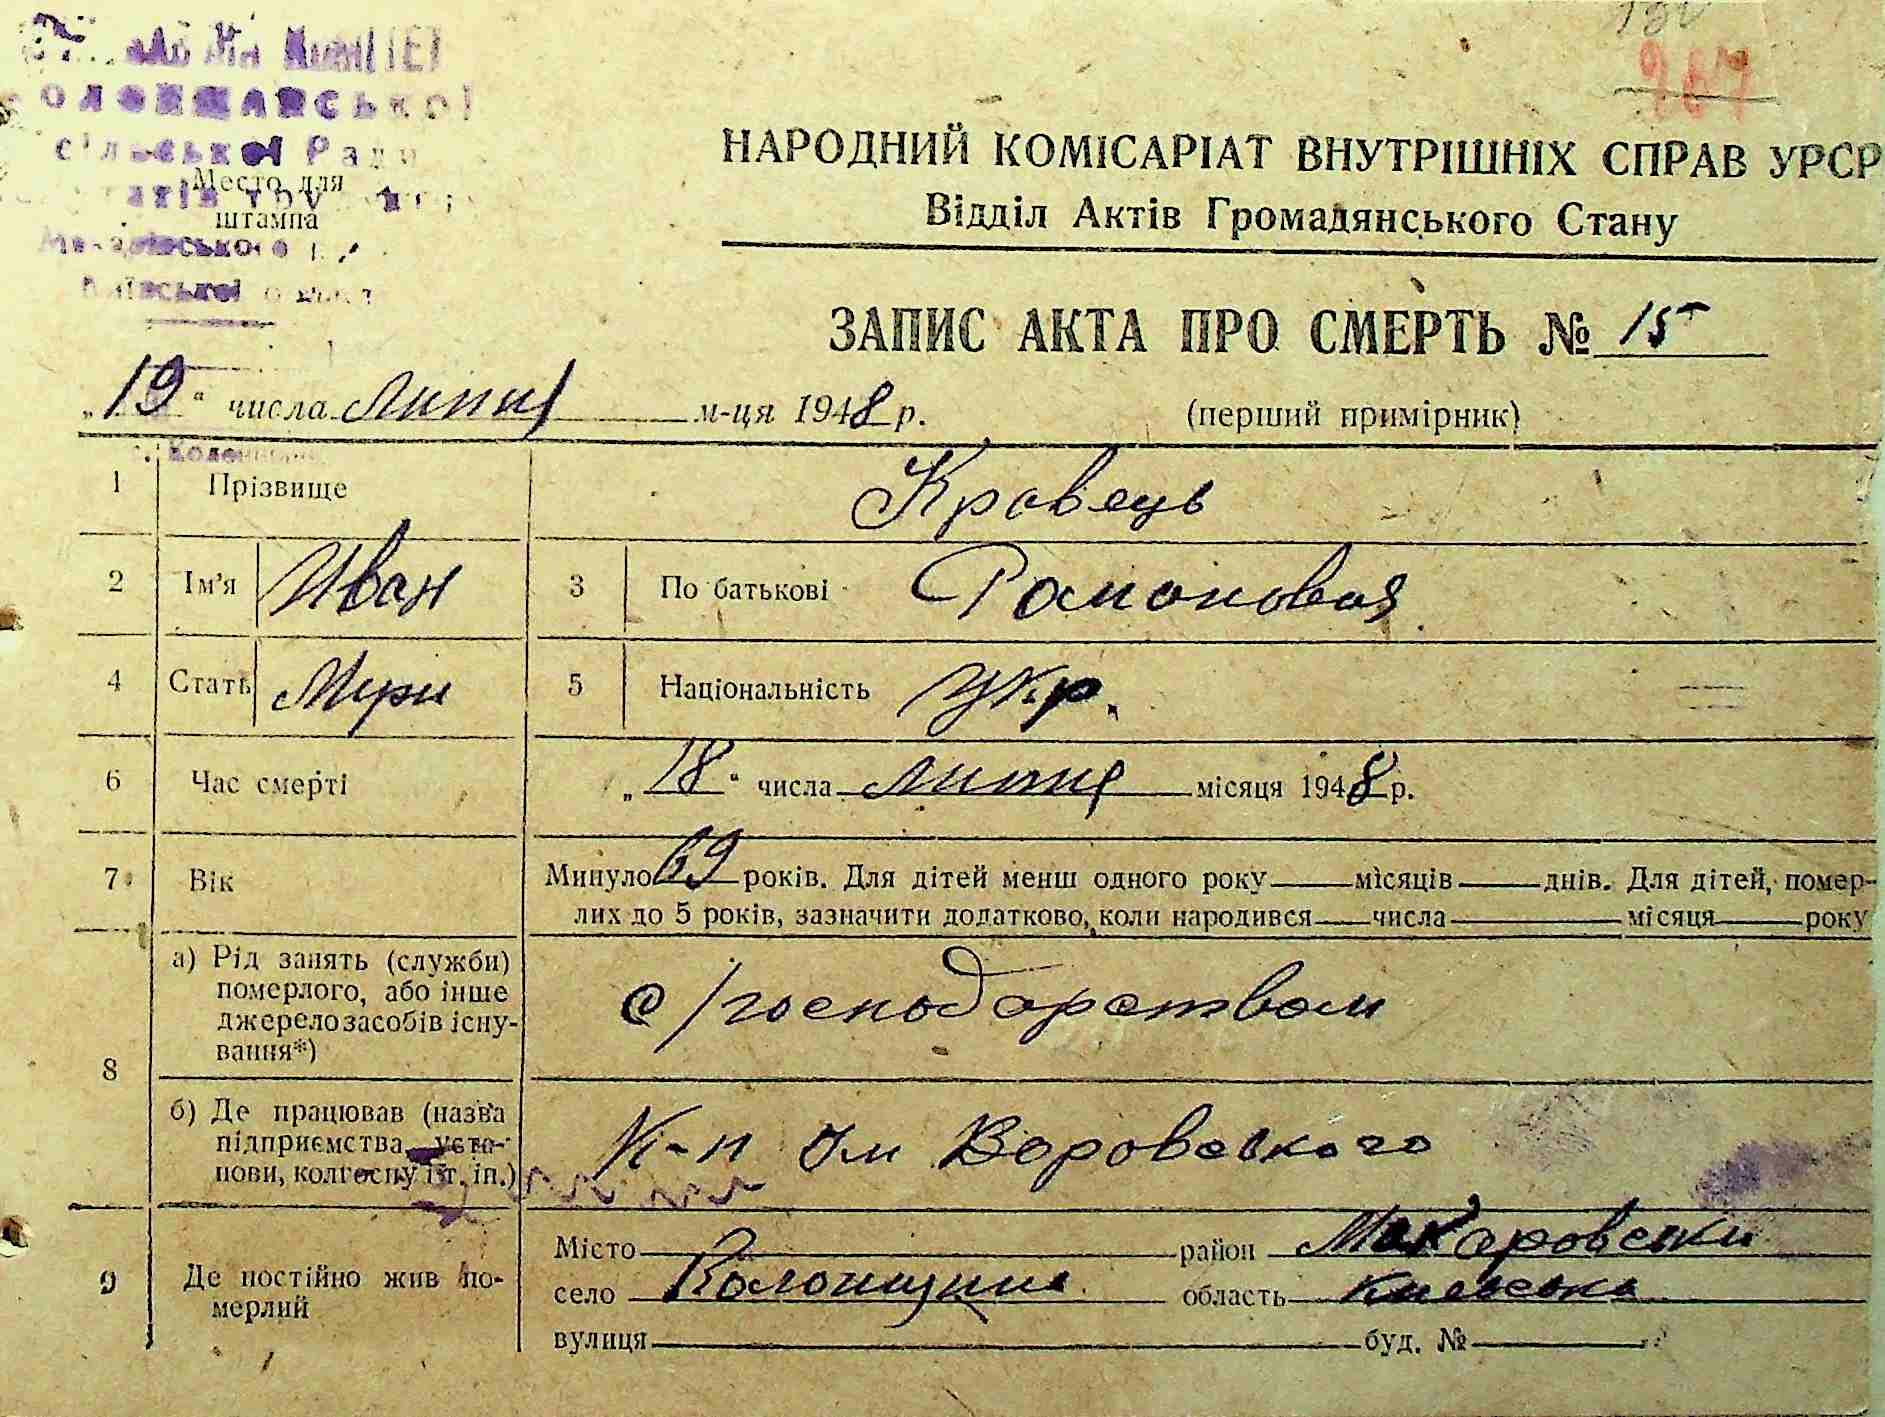 олонщанської
сільської Ради
Место для
штампа
Київської
НАРОДНИЙ КОМІСАРІАТ ВНУТРІШНІХ СПРАВ УРСР
Відділ Актів Громадянського Стану
ЗАПИС АКТА ПРО СМЕРТЬ № 15
„19“ числа липня м-ця 1948 р. (перший примірник)
1 Прізвище Кровець
2 Ім'я Иван 3 По батькові Романовия
4 Стать 5 Національність укр.
6 Час смерті „18“ числа липня місяця 1948 р.
7 Вік Минуло 69 років. Для дітей менш одного року місяців днів. Для дітей, помер-
лих до 5 років, зазначити додатково, коли народився числа місяця року
8 а) Рід занять (служби)
померлого, або інше
джерело засобів існу-
вання*)
с/господарством
б) Де працював (назва
підприємства, уста-
нови, колгоспу і т. ін.)
К-п Им Воровського
9 Де постійно жив по-
мерлий
Місто район Макаровски
село Колонщина область Киевська
вулиця буд. №